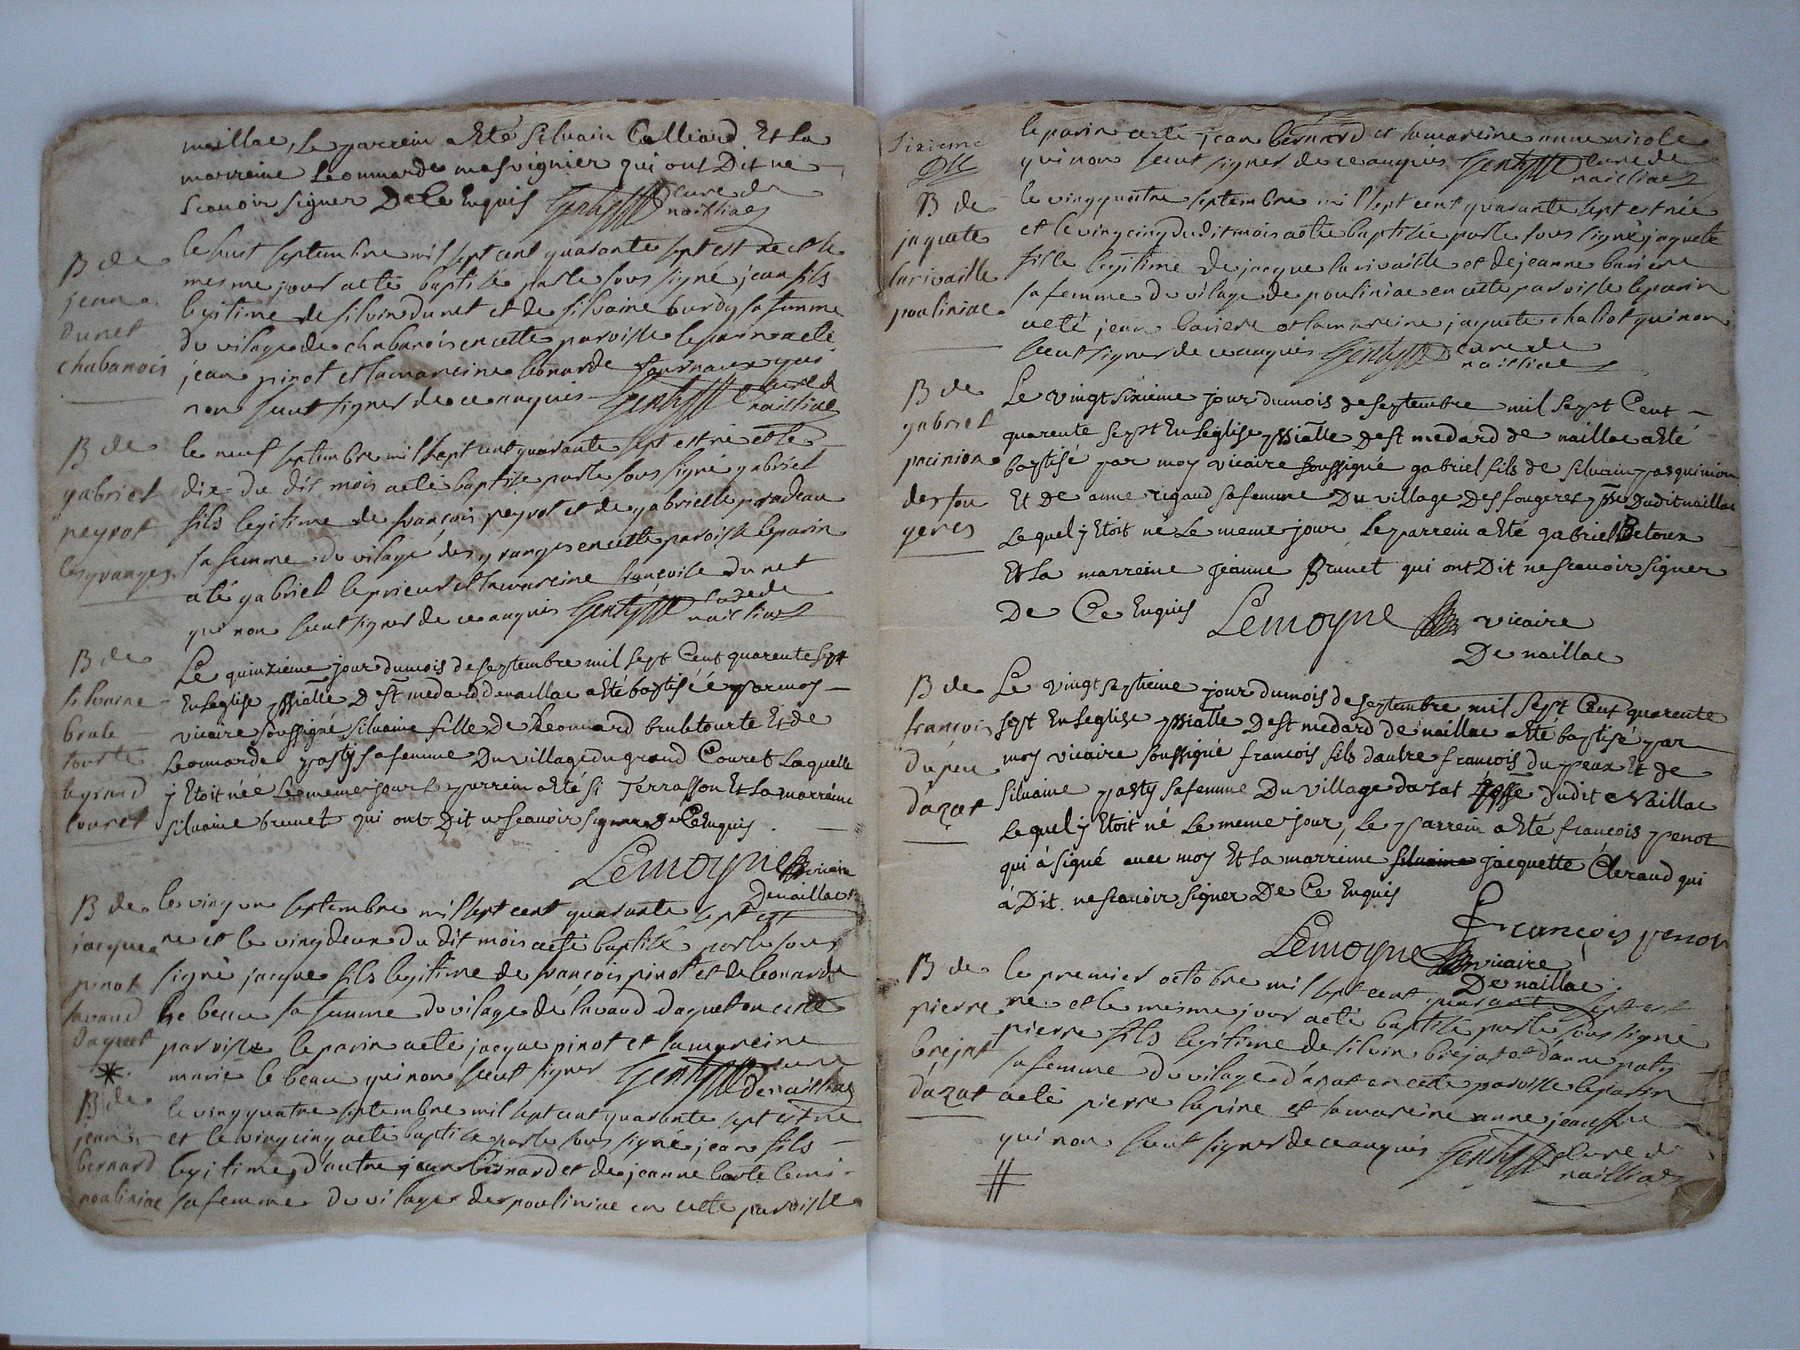 naillac, Le parrein a Eté Silvain Calliard Et La
marreine Leonnarde mesvignier qui ont Dit ne
scavoir signer De Ce Enquis Genty curé de
naillac
B de
jean
dunet
chabanois
le huit septembre mil sept cent quarante sept est né et le
mesme jour a eté baptisé par le sous signé jean fils
legitime de silvin dunet et de silvaine burdy sa femme
du vilage de chabanois en cette paroisse le parin a eté
jean pinot et la mareine leonarde fournaux qui
non seut signer de ce anquis Genty curé de
nailliac
B de
gabriel
peyrot
les granges
le neuf septembre mil sept cent quarante sept est né et le
dix du dit mois a eté baptisé par le sous signé gabriel
fils legitime de françois peyrot et de gabrielle pradeau
sa femme du vilage des granges en cette paroisse le parin
a eté gabriel leprieur et la mareine françoise dunet
qui non seut signer de ce anquis Genty curé de
nailliac
B de
silvaine
brule
tourte
le grand
couret
Le quinzieme jour du mois de septembre mil sept Cent quarente sept
En Leglise pssialle D St medard de naillac a eté baptiséé par moy
vicaire soussigné silvaine fille De Leonnard bruletourte Et de
Leonnarde pasty sa femme Du village du grand Couret Laquelle
y Etoit néé Le meme jour Le parrein a eté si Terrasson Et La marreine
silvaine brunet qui ont Dit ne scavoir signer De Ce Enquis
Lemoyne vicaire
De naillac
B de
jacque
pinot
lavaud
daquet
le vingt un septembre mil sept cent quarante sept est
né et le vingdeux du dit mois a eté baptisé par le sous
signé jacque fils legitime de françois pinot et de leonarde
le beau sa femme du vilage de lavaud daquet en cette
paroisse le parin a eté jacque pinot et la mareine
marie le beau qui non seut signer Genty curé
de nailliac
B de
jean
bernard
pouliniac
le vingquatre septembre mil sept cent quarante sept est né
et le vingcinq a eté baptisé par le sous signé jean fils
legitime d'autre jean bernard et de jeanne
sa femme du vilage de pouliniac en cette paroisse
sixieme
le parin a eté jean bernard et la mareine anne nicole
qui non seut signer de ce anquis Genty curé de
nailliac
B de
jaquete
larivaille
pouliniac
le vingquatre septembre mil sept cent quarante sept est née
et le vingcinq du dit mois a eté baptisée par le sous signé jaquete
fille legitime de jacque larivaille et de jeanne bariere
sa femme du vilage de pouliniac en cette paroisse le parin
a eté jean bariere et la mareine jaquete chaliot qui non
seut signer de ce anquis Genty curé de
nailliac
B de
gabriel
pacinion
des fou
geres
Le vingt sixieme jour du mois de septembre mil sept Cent
quarente sept En Leglise pssialle De St medard de naillac a eté
baptisé par moy vicaire soussigné gabriel fils de silvain pasquinion
Et De anne rigaud sa femme Du village Des fougeres psse Dudit naillac
Lequel y Etoit né Le meme jour Le parrein a eté gabriel Betoux
Et La marreine jeanne Brunet qui ont Dit ne scavoir signer
De Ce Enquis Lemoyne vicaire
De naillac
B de
françois
dupeu
dazat
Le vingt septieme jour du mois de septembre mil sept Cent quarente
sept En Leglise pssialle De St medard de naillac a eté baptisé par
moy vicaire soussigné françois fils d'autre françois du peux Et de
silvaine pasty sa femme Du village dazat psse Dudit Naillac
Lequel y Etoit né Le meme jour, Le parrein a eté françois penot
qui à signé avec moy Et La marreine silvaine jacquette Cleraud qui
à Dit ne scavoir signer De Ce Enquis
François penot
Lemoyne vicaire
De naillac
B de
pierre
brejat
dazat
le premier octobre mil sept cent quarante sept est
né et le mesme jour a eté baptisé par le sous signé
pierre fils legitime de silvin brejat et danne paty
sa femme du vilage d'azat en cette paroisse le parin
a eté pierre lapine et la mareine anne
qui non seut signer de ce anquis Genty curé de
nailliac